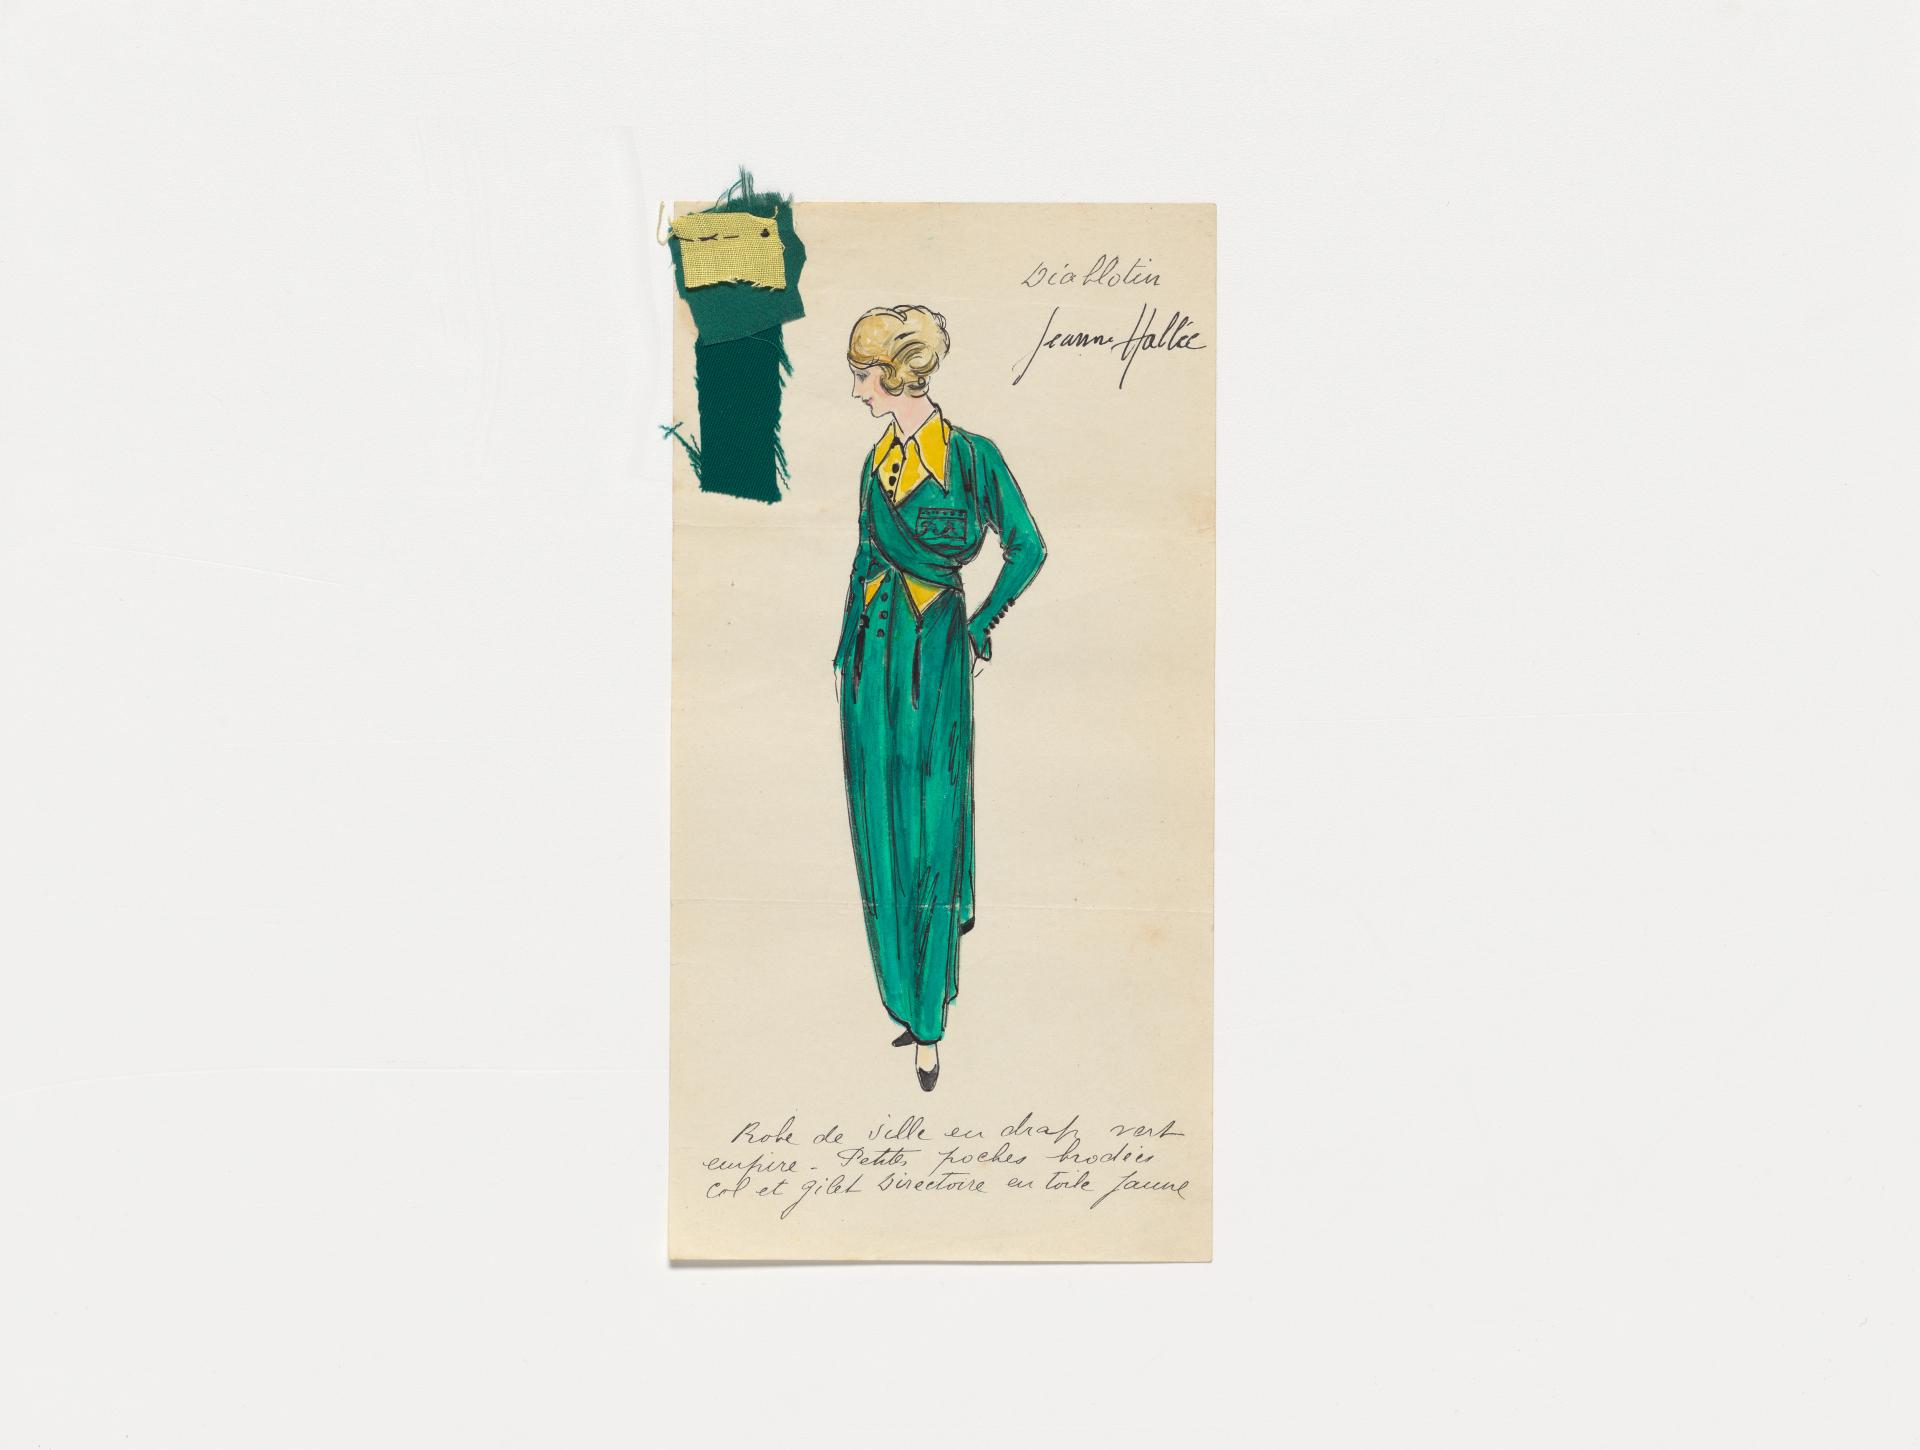 Diablotin
Jeanne Hallée
Robe de ville en drap vert
empire - Petites poches brodées
col et gilet Directoire en toile jaune